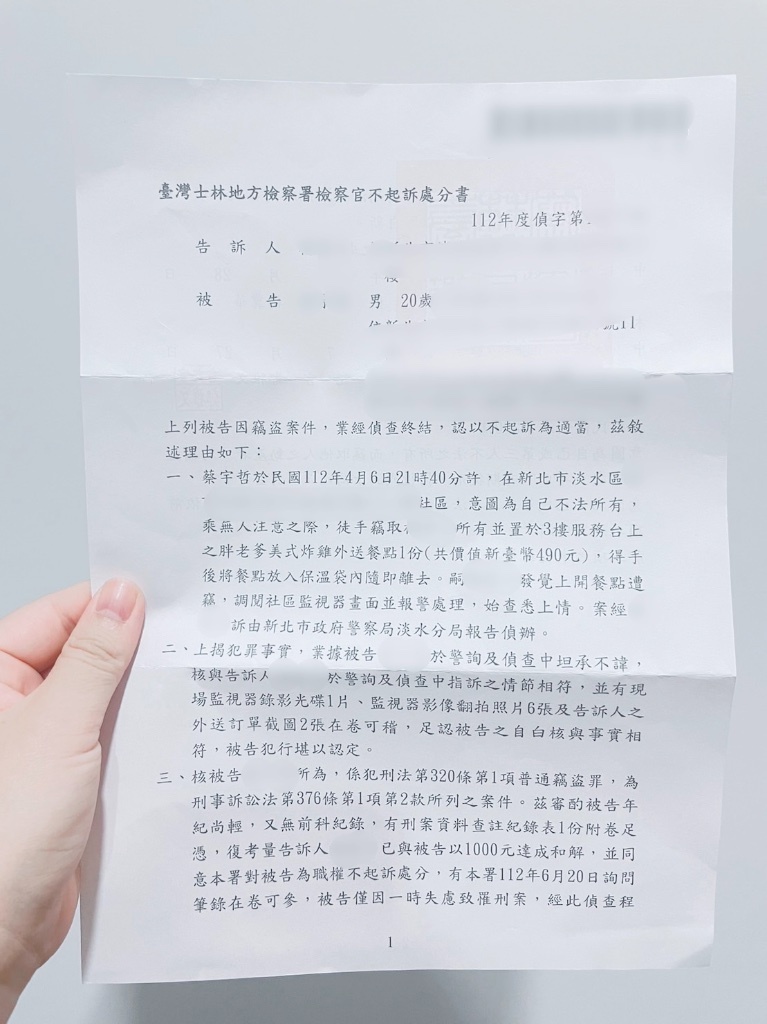 臺灣士林地方檢察署檢察官不起訴處分書
112年度偵字第
告訴人
被告 男 20歲
上列被告因竊盜案件，業經偵查終結，認以不起訴為適當，茲敘
述理由如下：
一、蔡宇哲於民國112年4月6日21時40分許，在新北市淡水區
社區，意圖為自己不法所有，
乘無人注意之際，徒手竊取 所有並置於3樓服務台上
之胖老爹美式炸雞外送餐點1份(共價值新臺幣490元)，得手
後將餐點放入保溫袋內隨即離去。嗣 發覺上開餐點遭
竊，調閱社區監視器畫面並報警處理，始查悉上情。案經
訴由新北市政府警察局淡水分局報告偵辦。
二、上揭犯罪事實，業據被告 於警詢及偵查中坦承不諱，
核與告訴人 於警詢及偵查中指訴之情節相符，並有現
場監視器錄影光碟1片、監視器影像翻拍照片6張及告訴人之
外送訂單截圖2張在卷可稽，足認被告之自白核與事實相
符，被告犯行堪以認定。
三、核被告 所為，係犯刑法第320條第1項普通竊盜罪，為
刑事訴訟法第376條第1項第2款所列之案件。茲審酌被告年
紀尚輕，又無前科紀錄，有刑案資料查註紀錄表1份附卷足
憑，復考量告訴人 已與被告以1000元達成和解，並同
意本署對被告為職權不起訴處分，有本署112年6月20日詢問
筆錄在卷可參，被告僅因一時失慮致罹刑案，經此偵查程
1